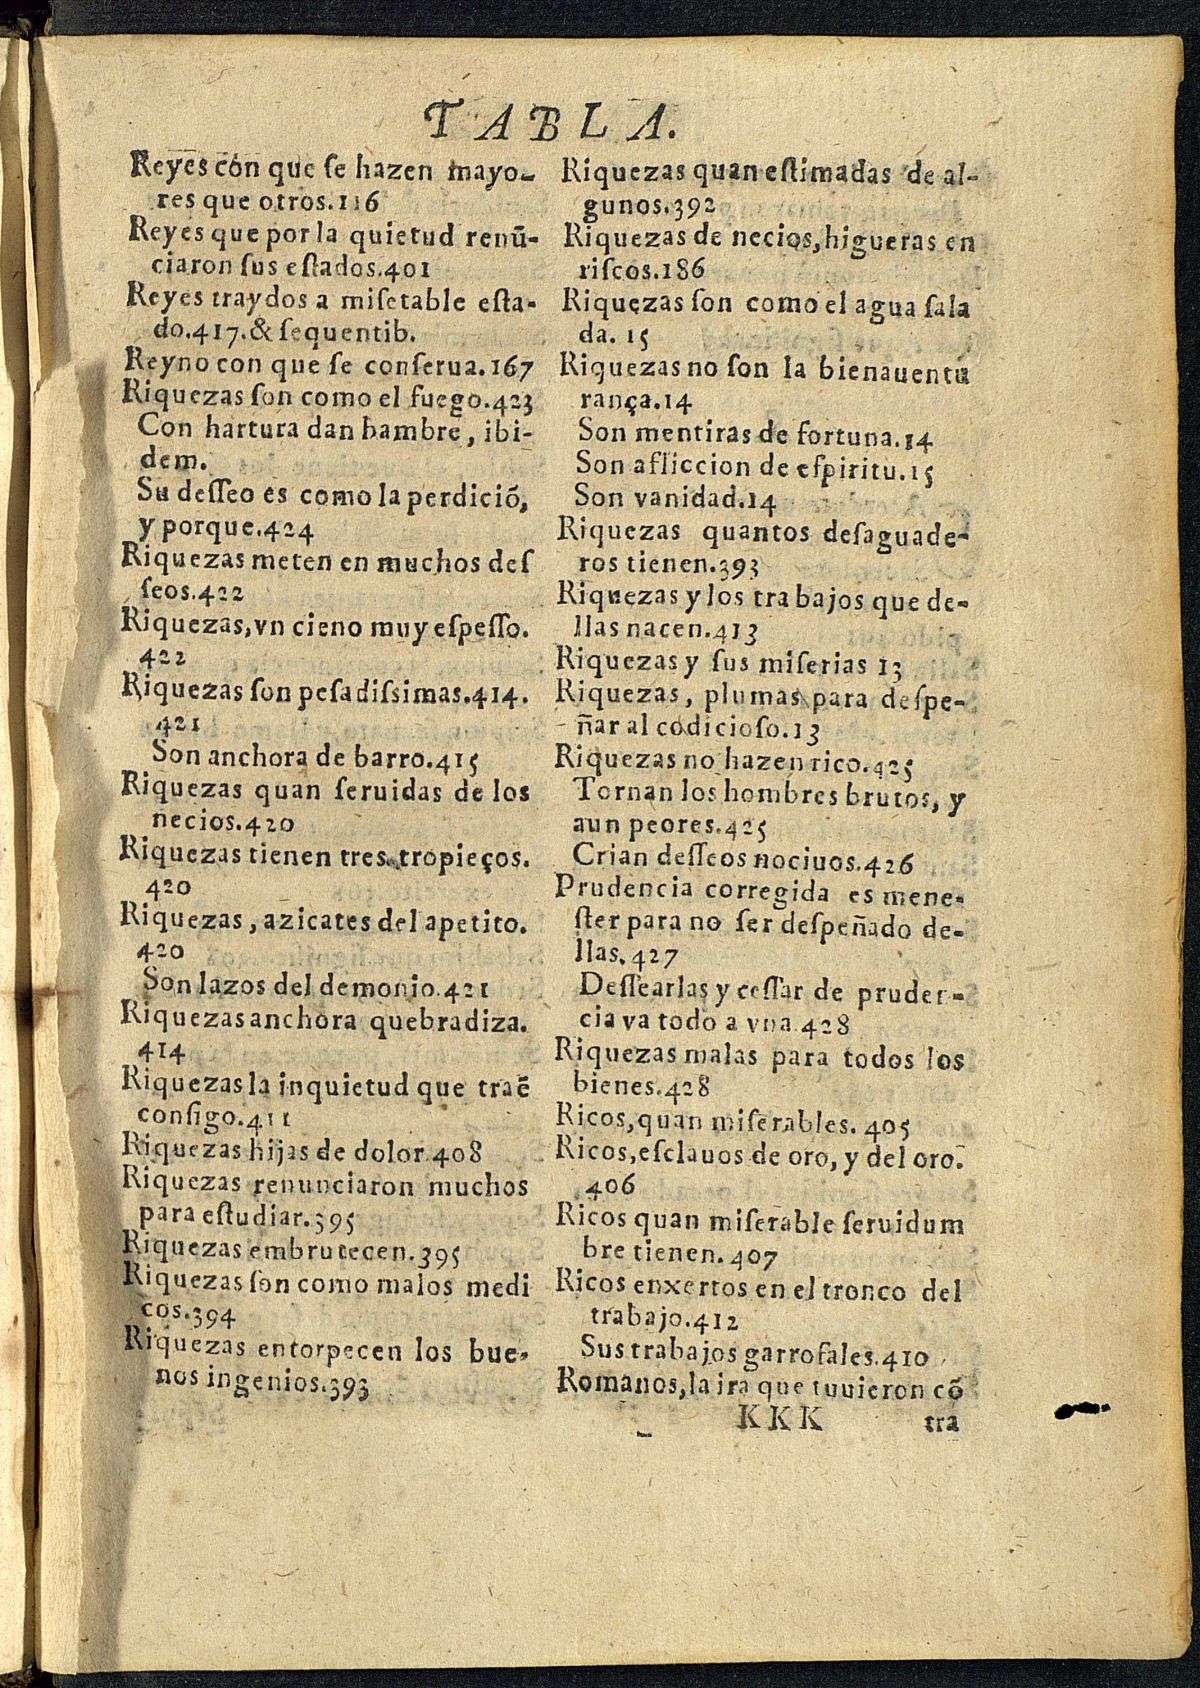 TABLA.
Reyes con que ſe hazen mayo-
res que otros.116
Reyes que por la quietud renũ-
ciaron ſus eſtados.401
Reyes traydos a miſetable eſta-
do.417.& ſequentib.
Reyno con que ſe conſerua.167
Riquezas ſon como el fuego.423
Con hartura dan hambre, ibi-
dem.
Su deſſeo es como la perdiciõ,
y porque.424
Riquezas meten en muchos deſ
ſeos.422
Riquezas,vn cieno muy eſpeſſo.
422
Riquezas ſon peſadiſsimas.414.
421
Son anchora de barro.415
Riquezas quan ſeruidas de los
necios.420
Riquezas tienen tres tropieços.
420
Riquezas, azicates del apetito.
420
Son lazos del demonio.421
Riquezas anchora quebradiza.
414
Riquezas la inquietud que traẽ
conſigo.411
Riquezas hijas de dolor.408
Riquezas renunciaron muchos
para eſtudiar.395
Riquezas embrutecen.395
Riquezas ſon como malos medi
cos.394
Riquezas entorpecen los bue-
nos ingenios.393
Riquezas quan eſtimadas de al-
gunos.392
Riquezas de necios,higueras en
riſcos.186
Riquezas ſon como el agua ſala
da. 15
Riquezas no ſon la bienauentu
rança.14
Son mentiras de fortuna.14
Son afliccion de eſpiritu.15
Son vanidad.14
Riquezas quantos deſaguade-
ros tienen.393
Riquezas y los trabajos que de-
llas nacen.413
Riquezas y ſus miſerias 13
Riquezas, plumas para deſpe-
ñar al codicioſo.13
Riquezas no hazen rico.425
Tornan los hombres brutos, y
aun peores.425
Crian deſſeos nociuos.426
Prudencia corregida es mene-
ſter para no ſer deſpeñado de-
llas.427
Deſſearlas y ceſſar de pruden-
cia va todo a vna.428
Riquezas malas para todos los
bienes.428
Ricos,quan miſerables. 405
Ricos,eſclauos de oro, y del oro.
406
Ricos quan miſerable ſeruidum
bre tienen.407
Ricos enxertos en el tronco del
trabajo.412
Sus trabajos garrofales.410
Romanos,la ira que tuuieron cõ
KKK tra